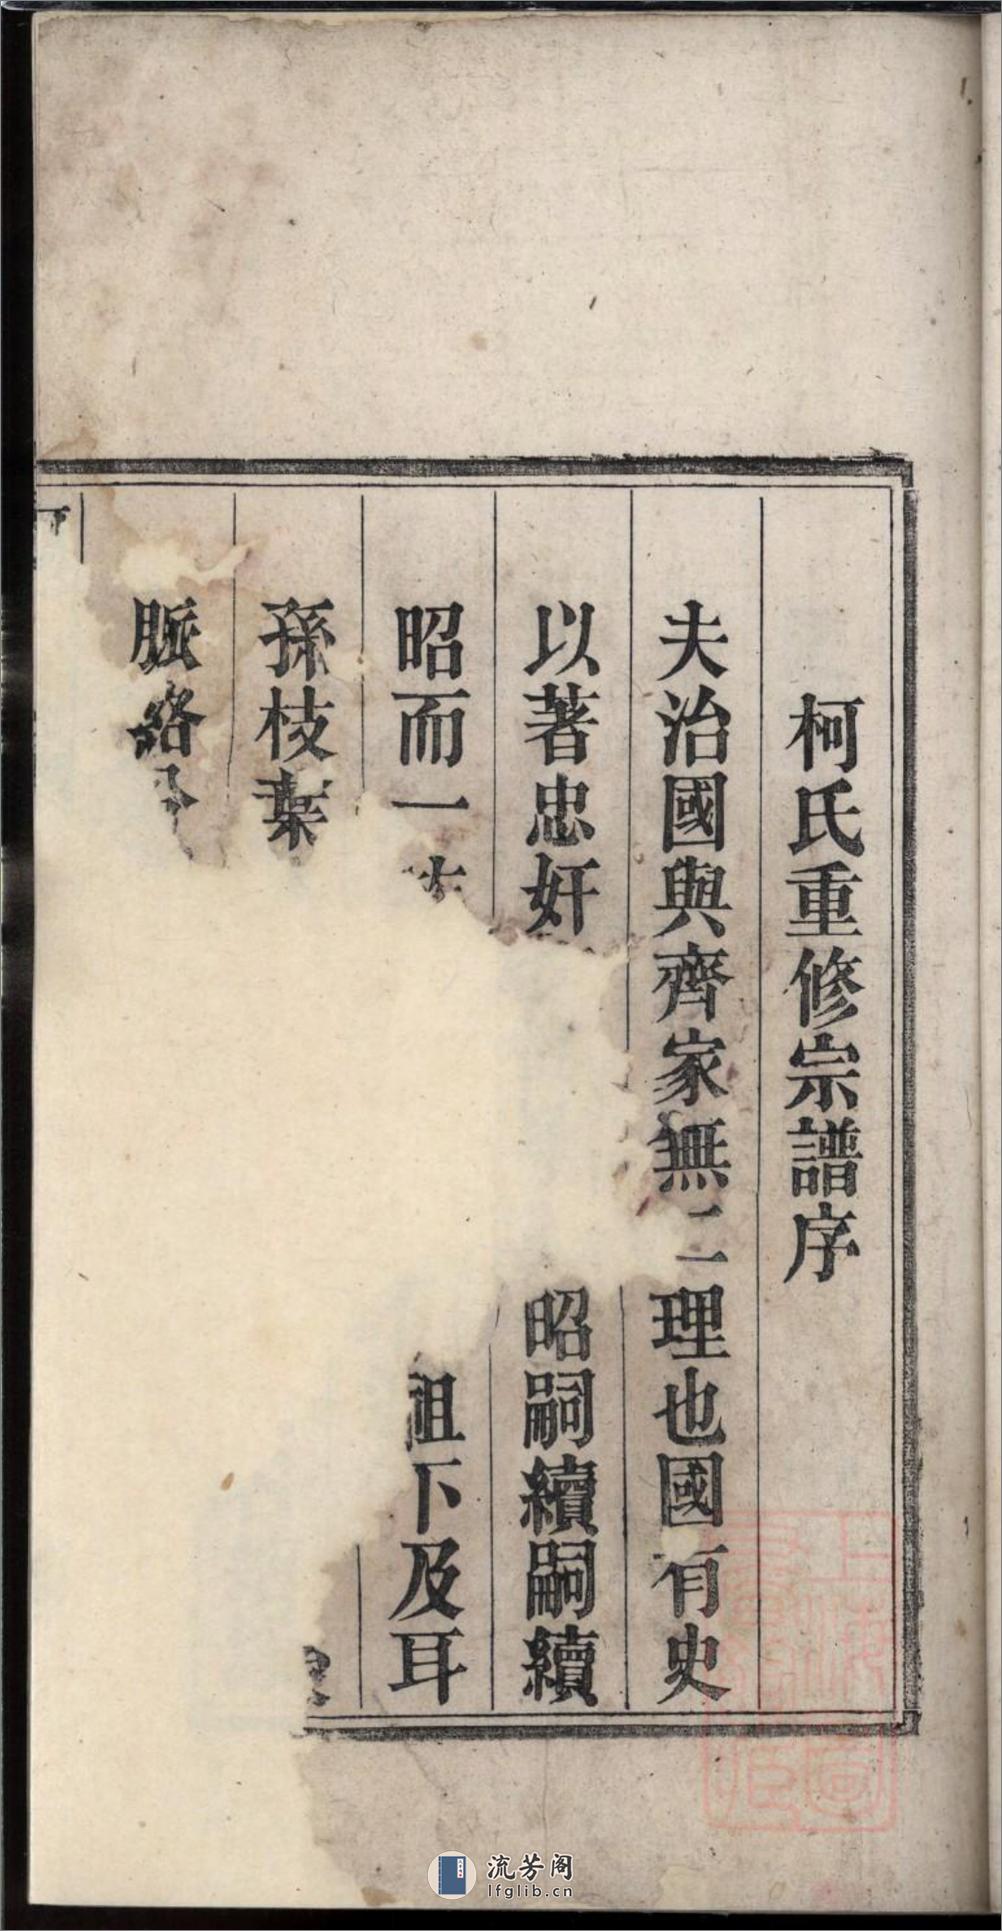 柯氏重修宗譜序
夫治國與齊家無二理也國有史
以著忠奸昭嗣續嗣續
昭而一祖下及耳
孫枝葉
脈絡
流芳阁
lfglib.cn